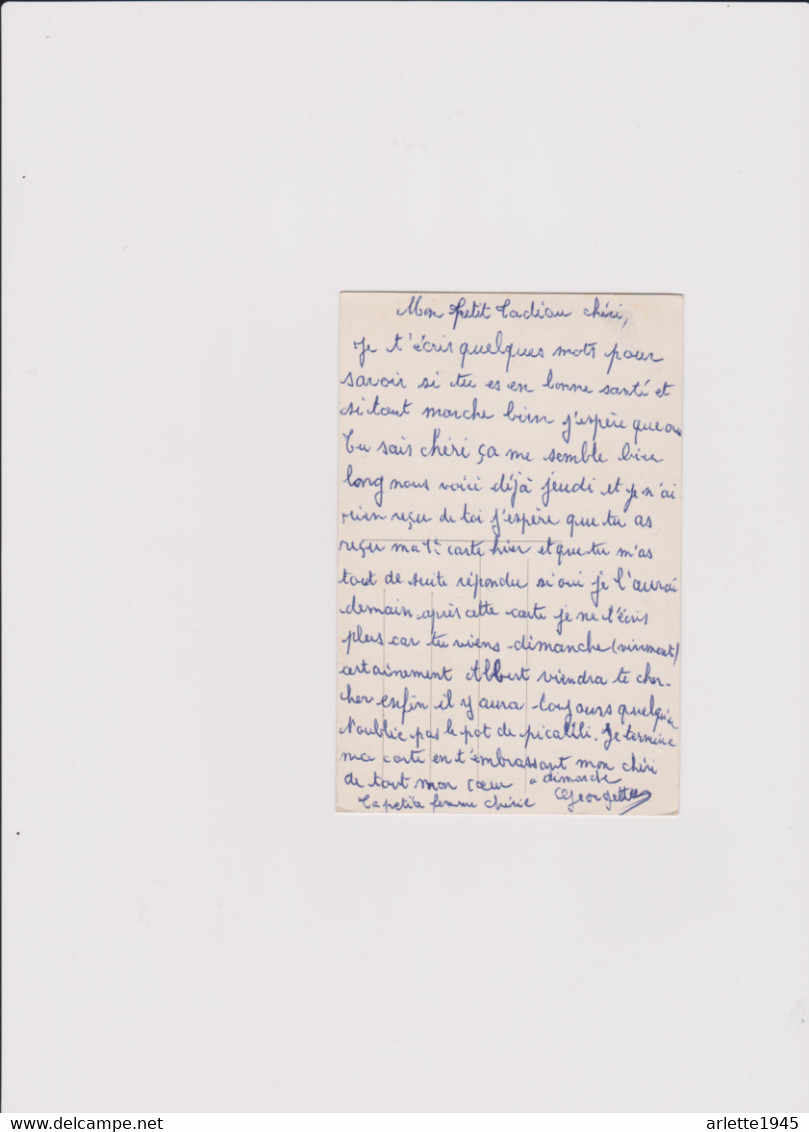 Mon petit Cadiou chéri,
Je t'écris quelques mots pour
savoir si tu es en bonne santé et
si tout marche bien j'espère que oui
Tu sais chéri ça me semble bien
long nous voici déjà jeudi et je n'ai
rien reçu de toi j'espère que tu as
reçu ma 1è carte hier et que tu m'as
tout de suite répondu si oui je l'aurai
demain, après cette carte je ne t'écris
plus car tu viens dimanche (vivement)
certainement Albert viendra te cher-
cher enfin il y aura toujours quelqu'un
N'oublie pas le pot de picalili. Je termine
ma carte en t'embrassant mon chéri
de tout mon cœur
à dimanche
Ta petite femme chérie
Georgette
delcampe.net
arlette1945